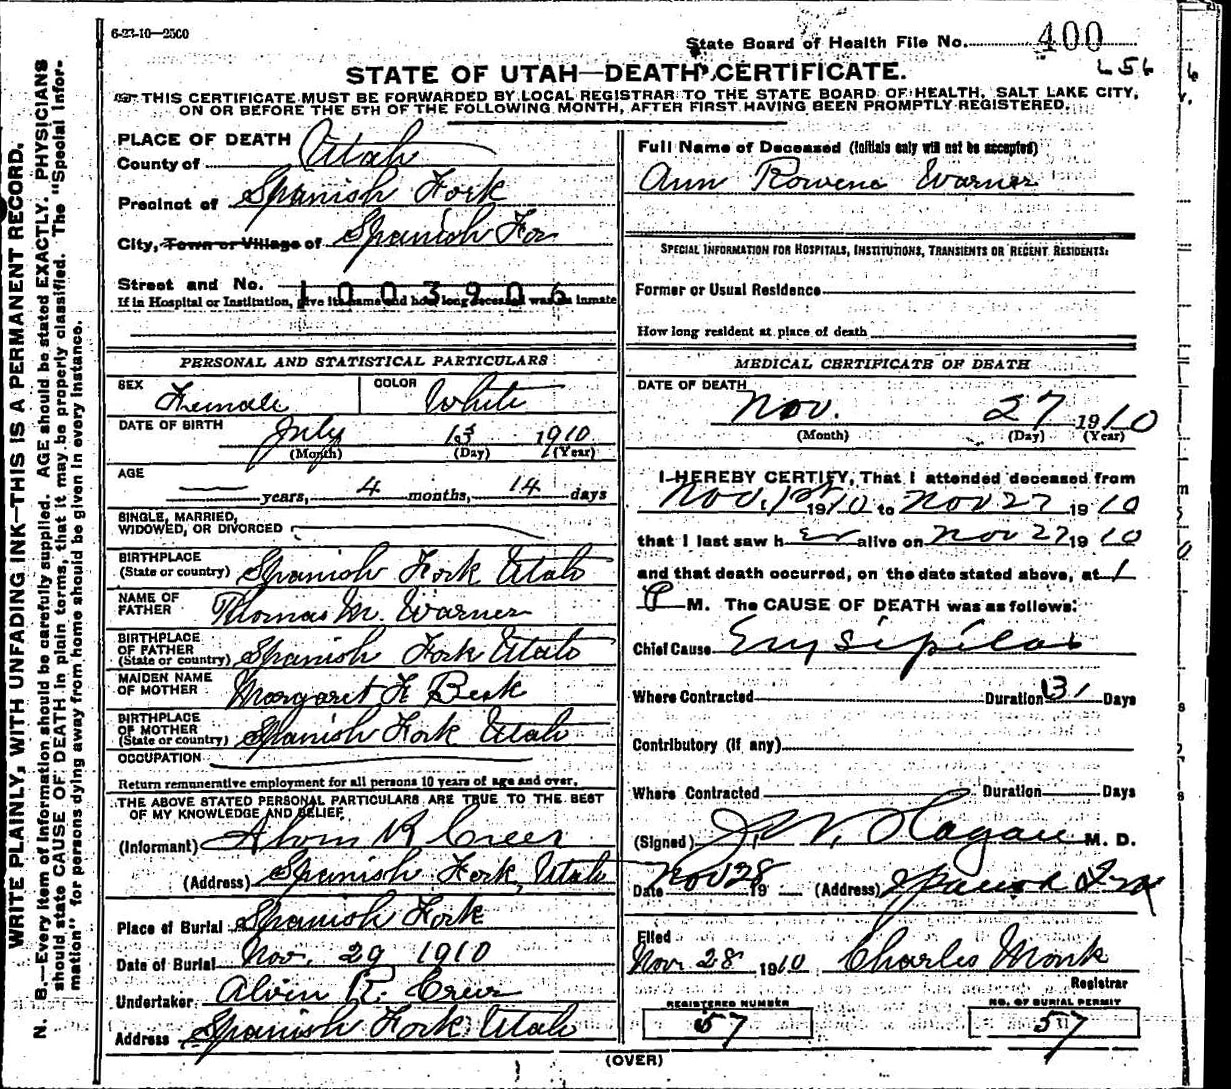 6-23-10—2500
State Board of Health File No. 400
656
STATE OF UTAH—DEATH CERTIFICATE.
THIS CERTIFICATE MUST BE FORWARDED BY LOCAL REGISTRAR TO THE STATE BOARD OF HEALTH, SALT LAKE CITY,
ON OR BEFORE THE 5TH OF THE FOLLOWING MONTH, AFTER FIRST HAVING BEEN PROMPTLY REGISTERED.
WRITE PLAINLY, WITH UNFADING INK—THIS IS A PERMANENT RECORD.
N. B.—Every item of information should be carefully supplied. AGE should be stated EXACTLY. PHYSICIANS
should state CAUSE OF DEATH in plain terms, that it may be properly classified. The "Special Infor-
mation" for persons dying away from home should be given in every instance.
PLACE OF DEATH
County of Utah
Precinct of Spanish Fork
City, Town or Village of Spanish For
Street and No. 1003906
If in Hospital or Institution, give its name and how long deceased was an inmate
PERSONAL AND STATISTICAL PARTICULARS
SEX Female COLOR White
DATE OF BIRTH July 13 1910
(Month) (Day) (Year)
AGE — years, 4 months, 14 days
SINGLE, MARRIED,
WIDOWED, OR DIVORCED
BIRTHPLACE
(State or country) Spanish Fork Utah
NAME OF
FATHER Thomas M. Warner
BIRTHPLACE
OF FATHER
(State or country) Spanish Fork Utah
MAIDEN NAME
OF MOTHER Margaret Beck
BIRTHPLACE
OF MOTHER
(State or country) Spanish Fork Utah
OCCUPATION
Return remunerative employment for all persons 10 years of age and over.
THE ABOVE STATED PERSONAL PARTICULARS ARE TRUE TO THE BEST
OF MY KNOWLEDGE AND BELIEF
(Informant) Alvin R Creer
(Address) Spanish Fork, Utah
Place of Burial Spanish Fork
Date of Burial Nov. 29 1910
Undertaker Alvin R. Creer
Address Spanish Fork Utah
Full Name of Deceased (Initials only will not be accepted)
Ann Rowena Warner
SPECIAL INFORMATION FOR HOSPITALS, INSTITUTIONS, TRANSIENTS OR RECENT RESIDENTS:
Former or Usual Residence
How long resident at place of death
MEDICAL CERTIFICATE OF DEATH
DATE OF DEATH
Nov. 27 1910
(Month) (Day) (Year)
I HEREBY CERTIFY, That I attended deceased from
Nov. 1st 1910 to Nov 27 1910
that I last saw her alive on Nov 27 1910
and that death occurred, on the date stated above, at 1
P M. The CAUSE OF DEATH was as follows:
Chief Cause Erysipelas
Where Contracted Duration 13 Days
Contributory (if any)
Where Contracted Duration Days
(Signed) Hagan M. D.
Date Nov 28 19 — (Address) Spanish Fork
Filed
Nov. 28 1910 Charles Monk
Registrar
REGISTERED NUMBER
57
NO. OF BURIAL PERMIT
57
(OVER)